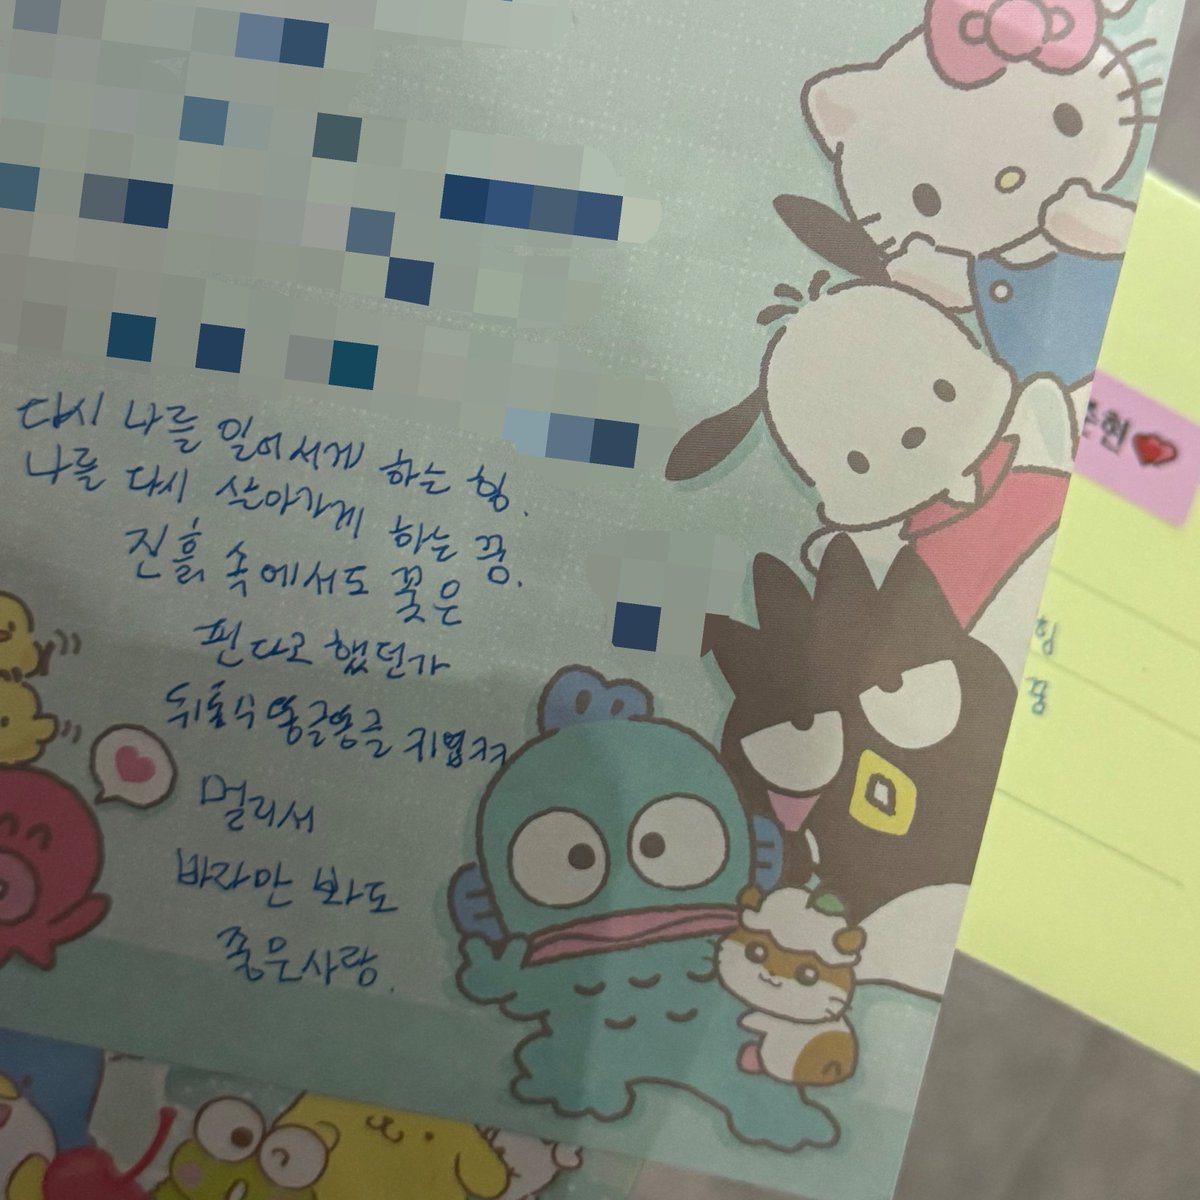 다시 나를 일어서게 하는 힘.
나를 다시 살아가게 하는 꿈.
진흙 속에서도 꽃은
핀다고 했던가
뒤통수 똥글똥글 귀엽ㅋㅋ
멀리서
바라만 봐도
좋은사람.
준현
힘
꿈